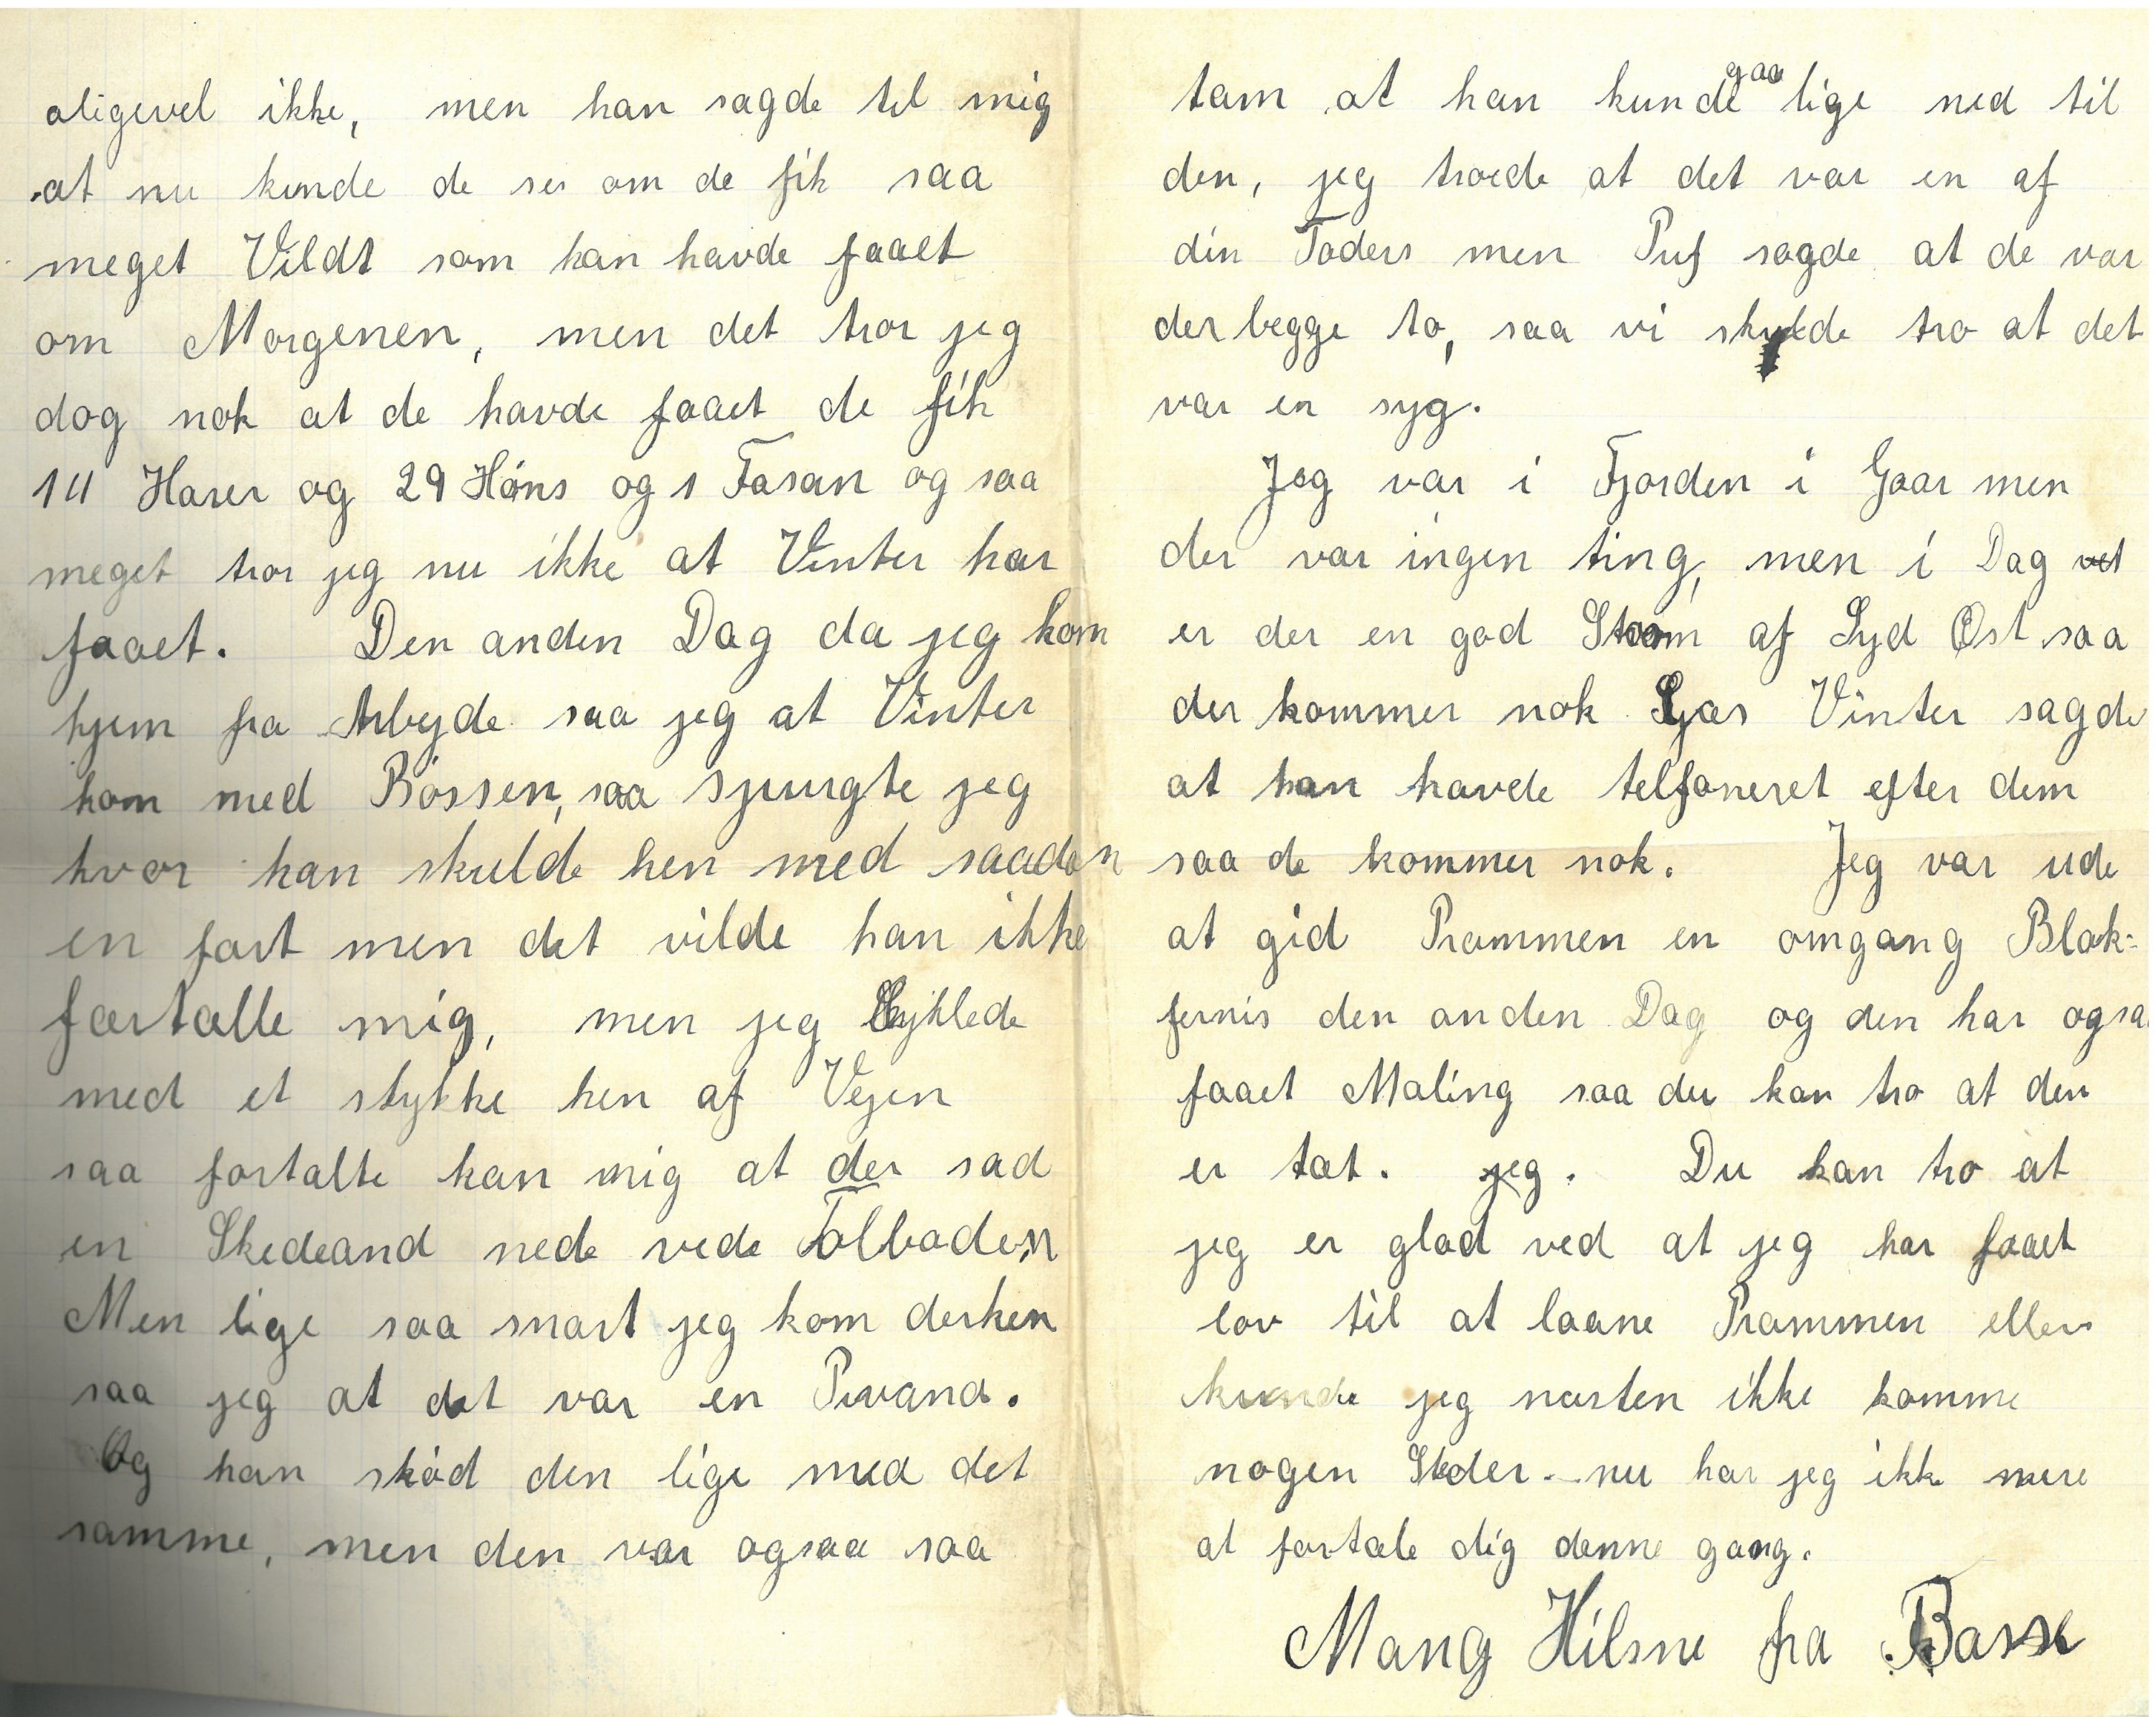 aligevel ikke, men han sagde til mig
at nu kunde de se om de fik saa
meget Vildt som han havde faaet
om Morgenen, men det tror jeg
dog nok at de havde faaet de fik
14 Harer og 29 Höns og 1 Fasan og saa
meget tror jeg nu ikke at Vinter har
faaet. Den anden Dag da jeg kom
hjem fra Arbejde saa jeg at Vinter
kom med Bössen, saa spurgte jeg
hvor han skulde hen med saadan
en fart men det vilde han ikke
fortælle mig, men jeg Cyklede
med et stykke hen af Vejen
saa fortalte han mig at der sad
en Skedeand nede vede Tolboden
Men lige saa snart jeg kom derhen
saa jeg at det var en Pivand.
Og han sköd den lige med det
samme, men den var ogsaa saa
tam at han kunde gaa lige ned til
den, jeg troede at det var en af
din Faders men Puf sagde at de var
der begge to, saa vi skulde tro at det
var en syg.
Jeg var i Fjorden i Gaar men
der var ingen ting, men i Dag
er der en god Storm af Syd Øst saa
der kommer nok Gæs Vinter sagde
at han havde telfoneret efter dem
saa de kommer nok. Jeg var ude
at gid Prammen en omgang Blak=
fernis den anden Dag og den har ogsaa
faaet Maling saa du kan tro at den
er tæt. jeg. Du kan tro at
jeg er glad ved at jeg har faaet
lov til at laane Prammen ellers
kunde jeg næsten ikke komme
nogen Steder. nu har jeg ikke mere
at fortæle dig denne gang.
Mang Hilsne fra Basse